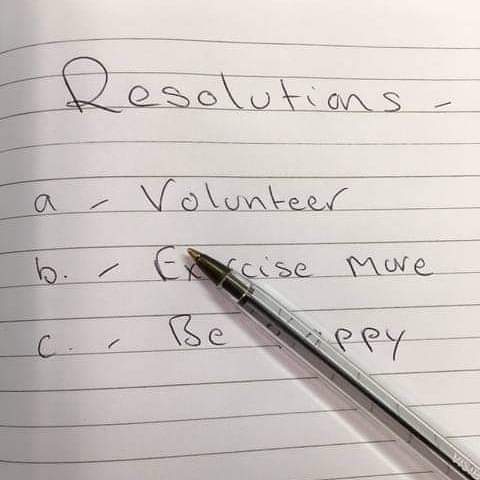 Resolutions -
a - Volunteer
b. - Exercise More
c. - Be